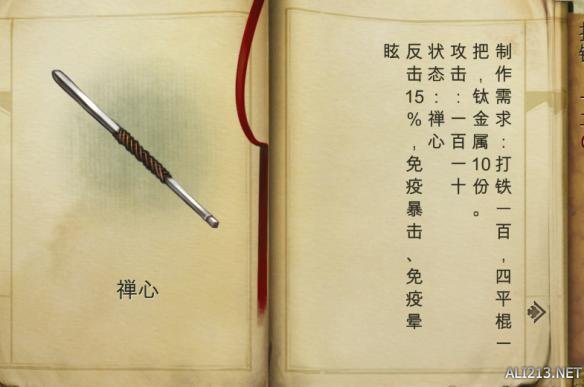 禅心
制作需求：打铁一百，四平棍一
把，钛金属10份。
攻击：一百一十
状态：禅心
反击15%，免疫暴击、免疫晕
眩
ALI213.NET